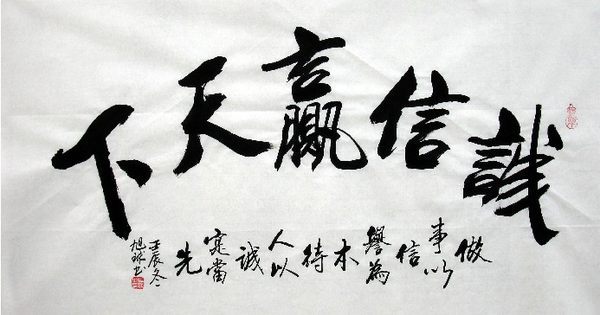 誠信贏天下
做事以信譽為本待人以誠寔當先
壬辰冬
旭